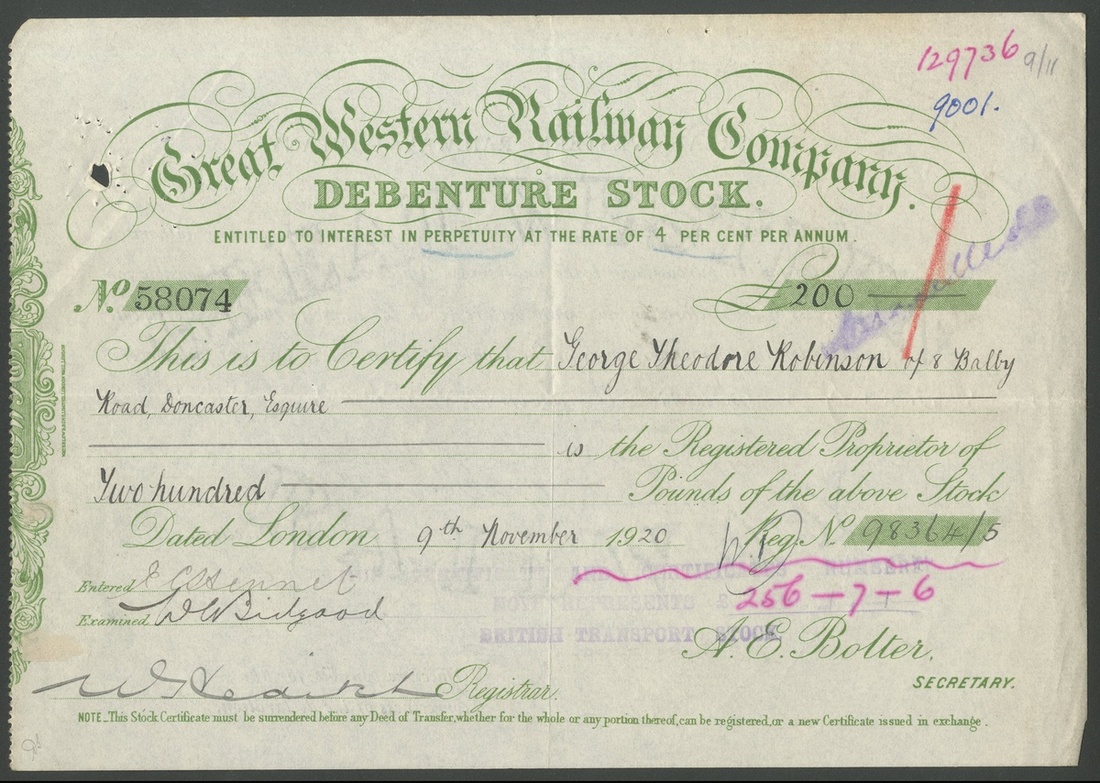 129736 9/11
9001.
Great Western Railway Company.
DEBENTURE STOCK.
ENTITLED TO INTEREST IN PERPETUITY AT THE RATE OF 4 PER CENT PER ANNUM.
No. 58074 £200
This is to Certify that George Theodore Robinson of 8 Balby
Road, Doncaster, Esquire
is the Registered Proprietor of
Two hundred Pounds of the above Stock
Dated London 9th November 1920 Reg. No. 98364/5
Entered
AND CERTIFICATE NUMBERS
Examined W C Bidgood
NOW REPRESENTS £ 256-7-6
BRITISH TRANSPORT STOCK
A. E. Bolter,
Registrar.
SECRETARY.
NOTE_This Stock Certificate must be surrendered before any Deed of Transfer, whether for the whole or any portion thereof, can be registered, or a new Certificate issued in exchange.